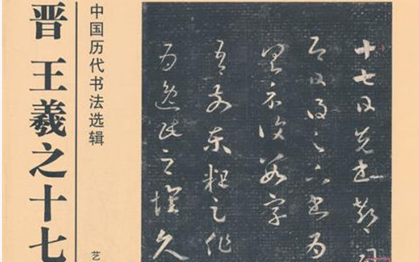 晋 王羲之十七
中国历代书法选辑
艺
十七日先書郗司
即日得足下書為
具示復數字
吾前東粗足作
為逸民之懷久